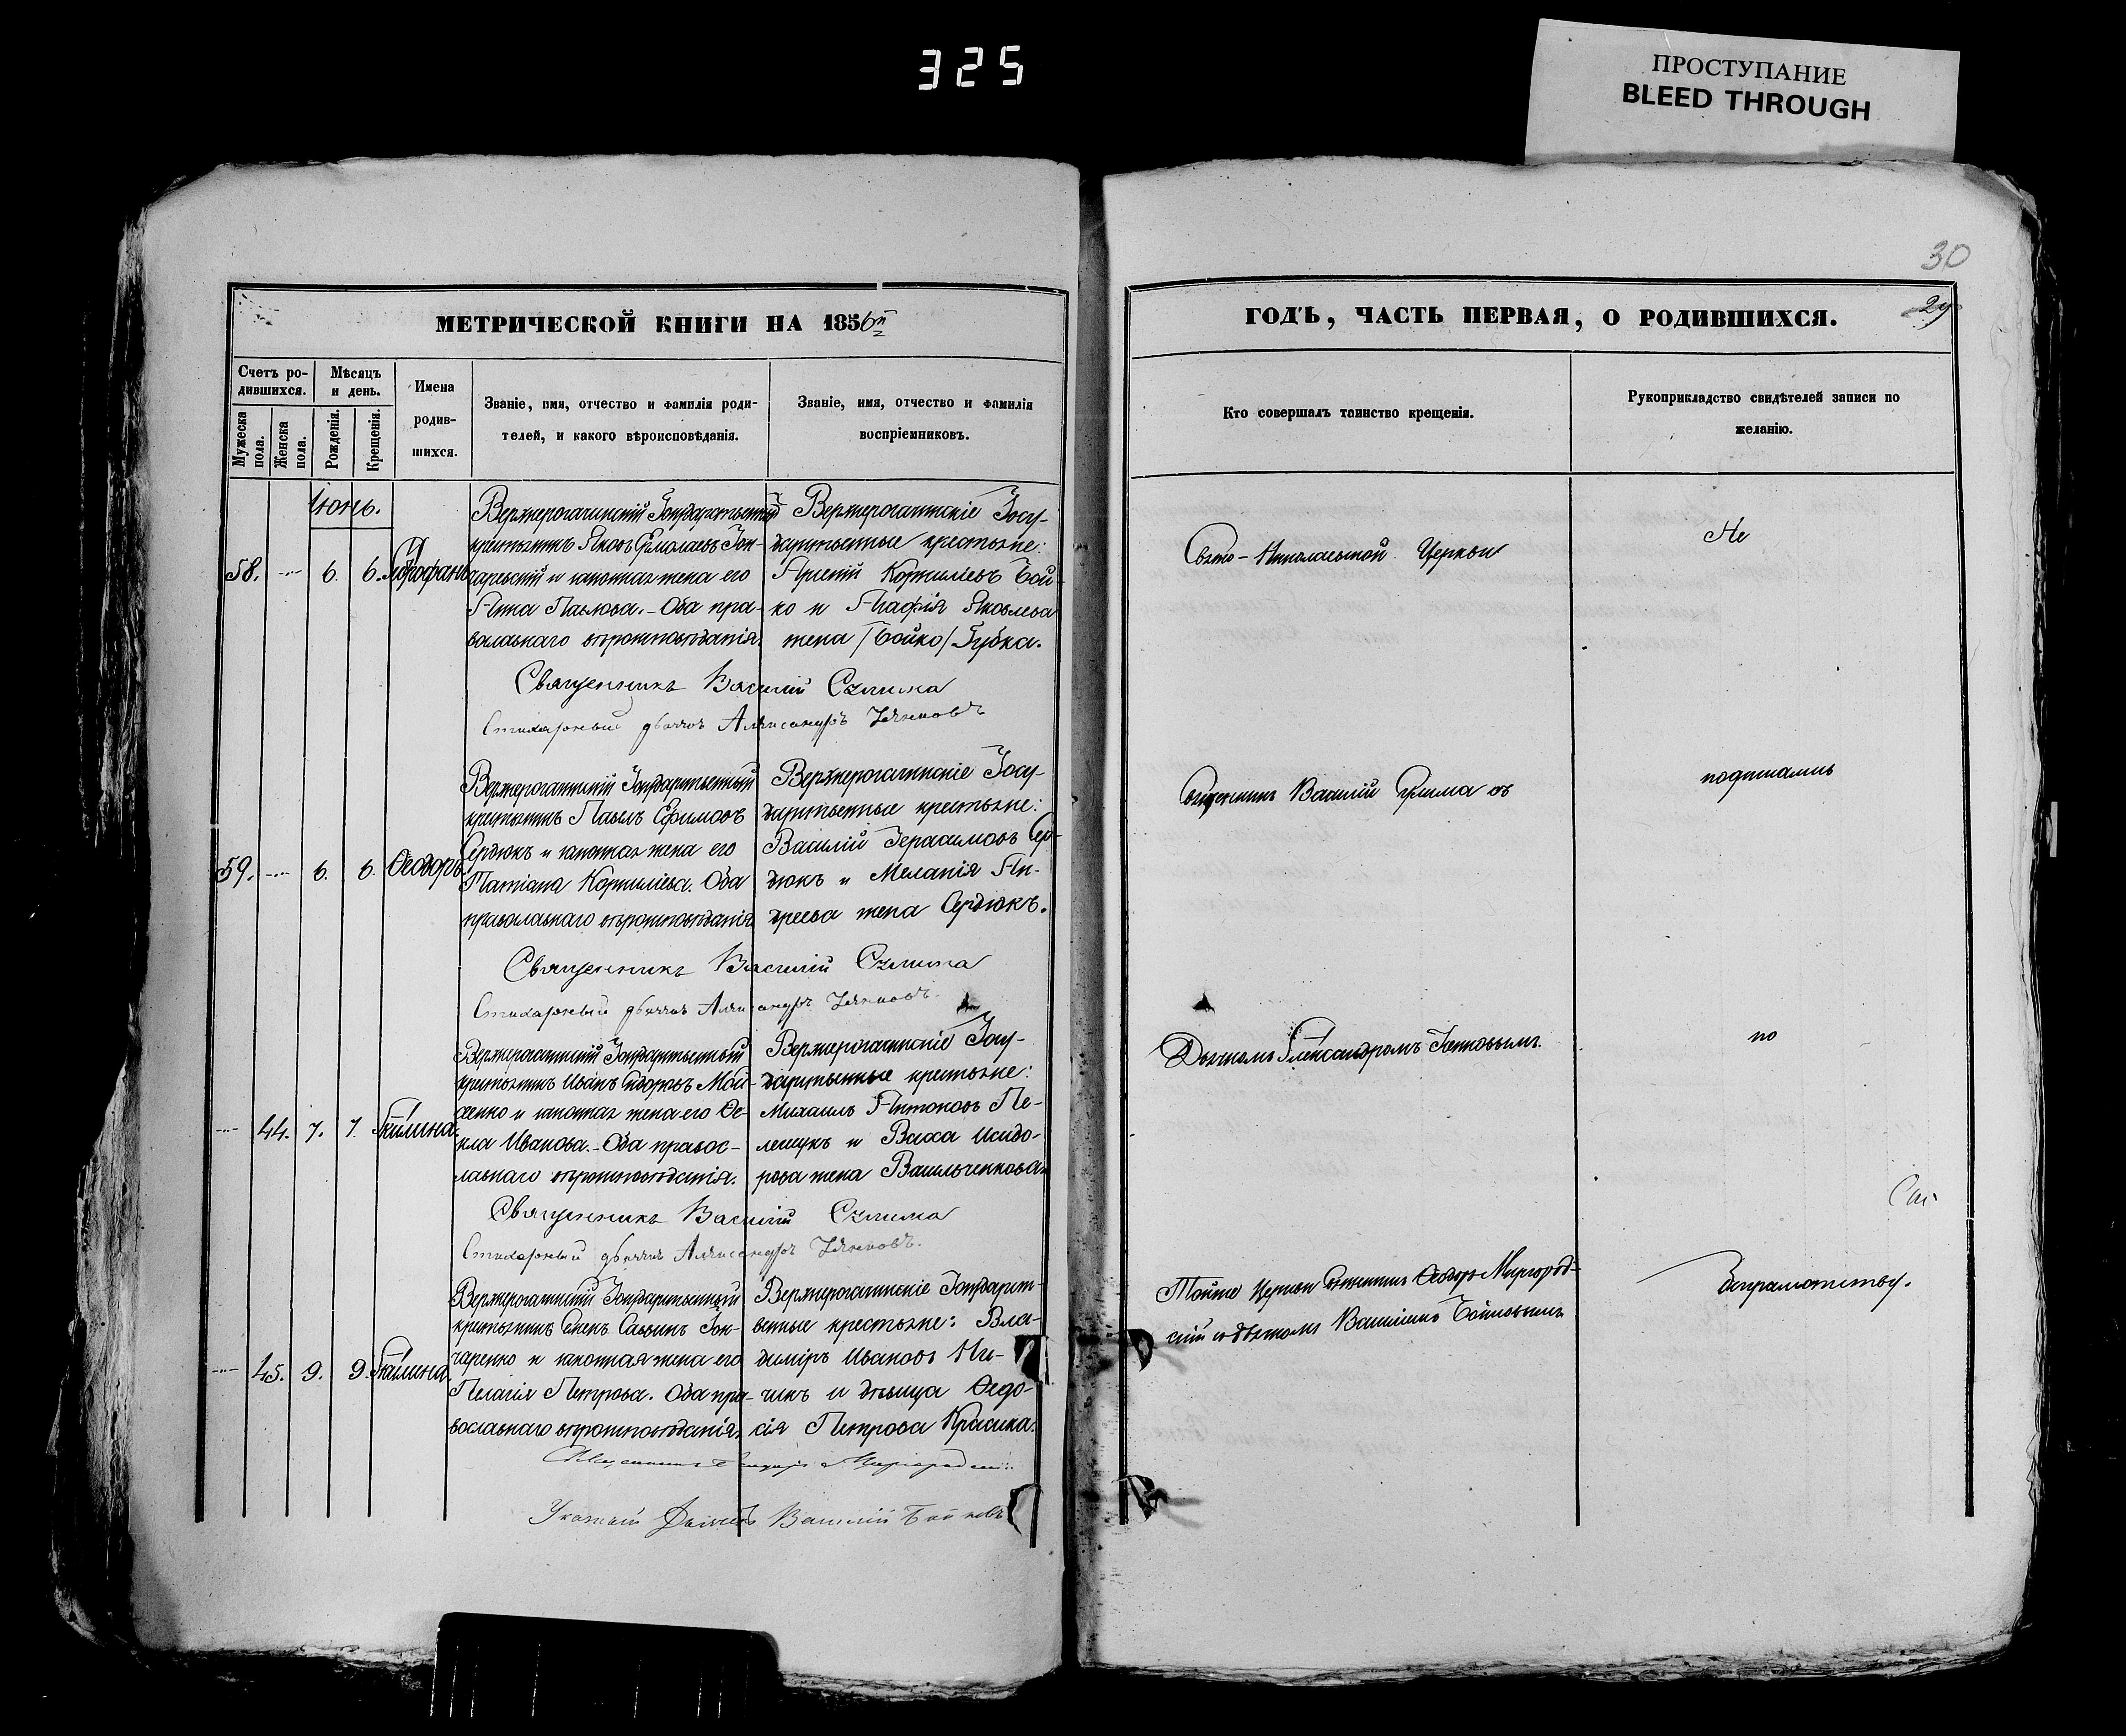 325
ПРОСТУПАНИЕ
BLEED THROUGH
30
29
МЕТРИЧЕСКОЙ КНИГИ НА 1856й
Счетъ ро-
дившихся.
Мужеска
пола.
Женска
пола.
Мѣсяцъ
и день.
Рожденія.
Крещенія.
Имена
родив-
шихся.
Званіе, имя, отчество и фамилія роди-
телей, и какого вѣроисповѣданія.
Званіе, имя, отчество и фамилія
воспріемниковъ.
Іюнь.
58. 6. 6.
Верхнерогачинскій Государственный
крестьянинъ Яковъ Ермолаевъ Гон-
чаревскій и законная жена его
Анна Павлова. Оба пра-
вославнаго вѣроисповѣданія.
Верхнерогачинскіе Госу-
дарственные крестьяне:
Арсеній Корниліевъ Бой-
ко и Агафія Яковлева
жена /Бойко/ Губка.
Священникъ Василій
Стихарный дьячокъ Александръ
59. 6. 6. Ѳеодоръ
Верхнерогачинскій Государственный
крестьянинъ Павелъ Ефимовъ
Сердюкъ и законная жена его
Татіана Корниліева. Оба
православнаго вѣроисповѣданія
Верхнерогачинскіе Госу-
дарственные крестьяне:
Василій Герасимовъ Сер-
дюкъ и Меланія Ан-
дреева жена Сердюкъ.
Священникъ Василій
Стихарный дьячокъ Александръ
44. 7. 7. Акилина.
Верхнерогачинскій Государственный
крестьянинъ Иванъ Сидоровъ Мой-
сеенко и законная жена его Ѳе-
кла Иванова. Оба правос-
лавнаго вѣроисповѣданія.
Верхнерогачинскіе Госу-
дарственные крестьяне:
Михаилъ Антоновъ Пе-
лешукъ и Васса Исидо-
рова жена Васильченкова
Священникъ Василій
Стихарный дьячокъ Александръ
45. 9. 9. Акилина.
Верхнерогачинскій Государственный
крестьянинъ Саввинъ Гон-
чаренко и законная жена его
Пелагія Петрова. Оба пра-
вославнаго вѣроисповѣданія.
Верхнерогачинскіе Государст-
венные крестьяне: Вла-
диміръ Ивановъ
и дѣвица Ѳедо-
сія Петрова Красика.
Священникъ Миргородскій
Указный Дьячокъ Василій Бойковъ
ГОДЪ, ЧАСТЬ ПЕРВАЯ, О РОДИВШИХСЯ.
Кто совершалъ таинство крещенія.
Рукоприкладство свидѣтелей записи по
желанію.
Свято-Николаевской Церкви
Священникъ Василій съ
Дьячкомъ Александромъ
Тойже Церкви Священникъ Ѳеодоръ Миргород-
скій съ дьячкомъ Василіемъ Бойковымъ
Не
подписались
по
безграмотству.